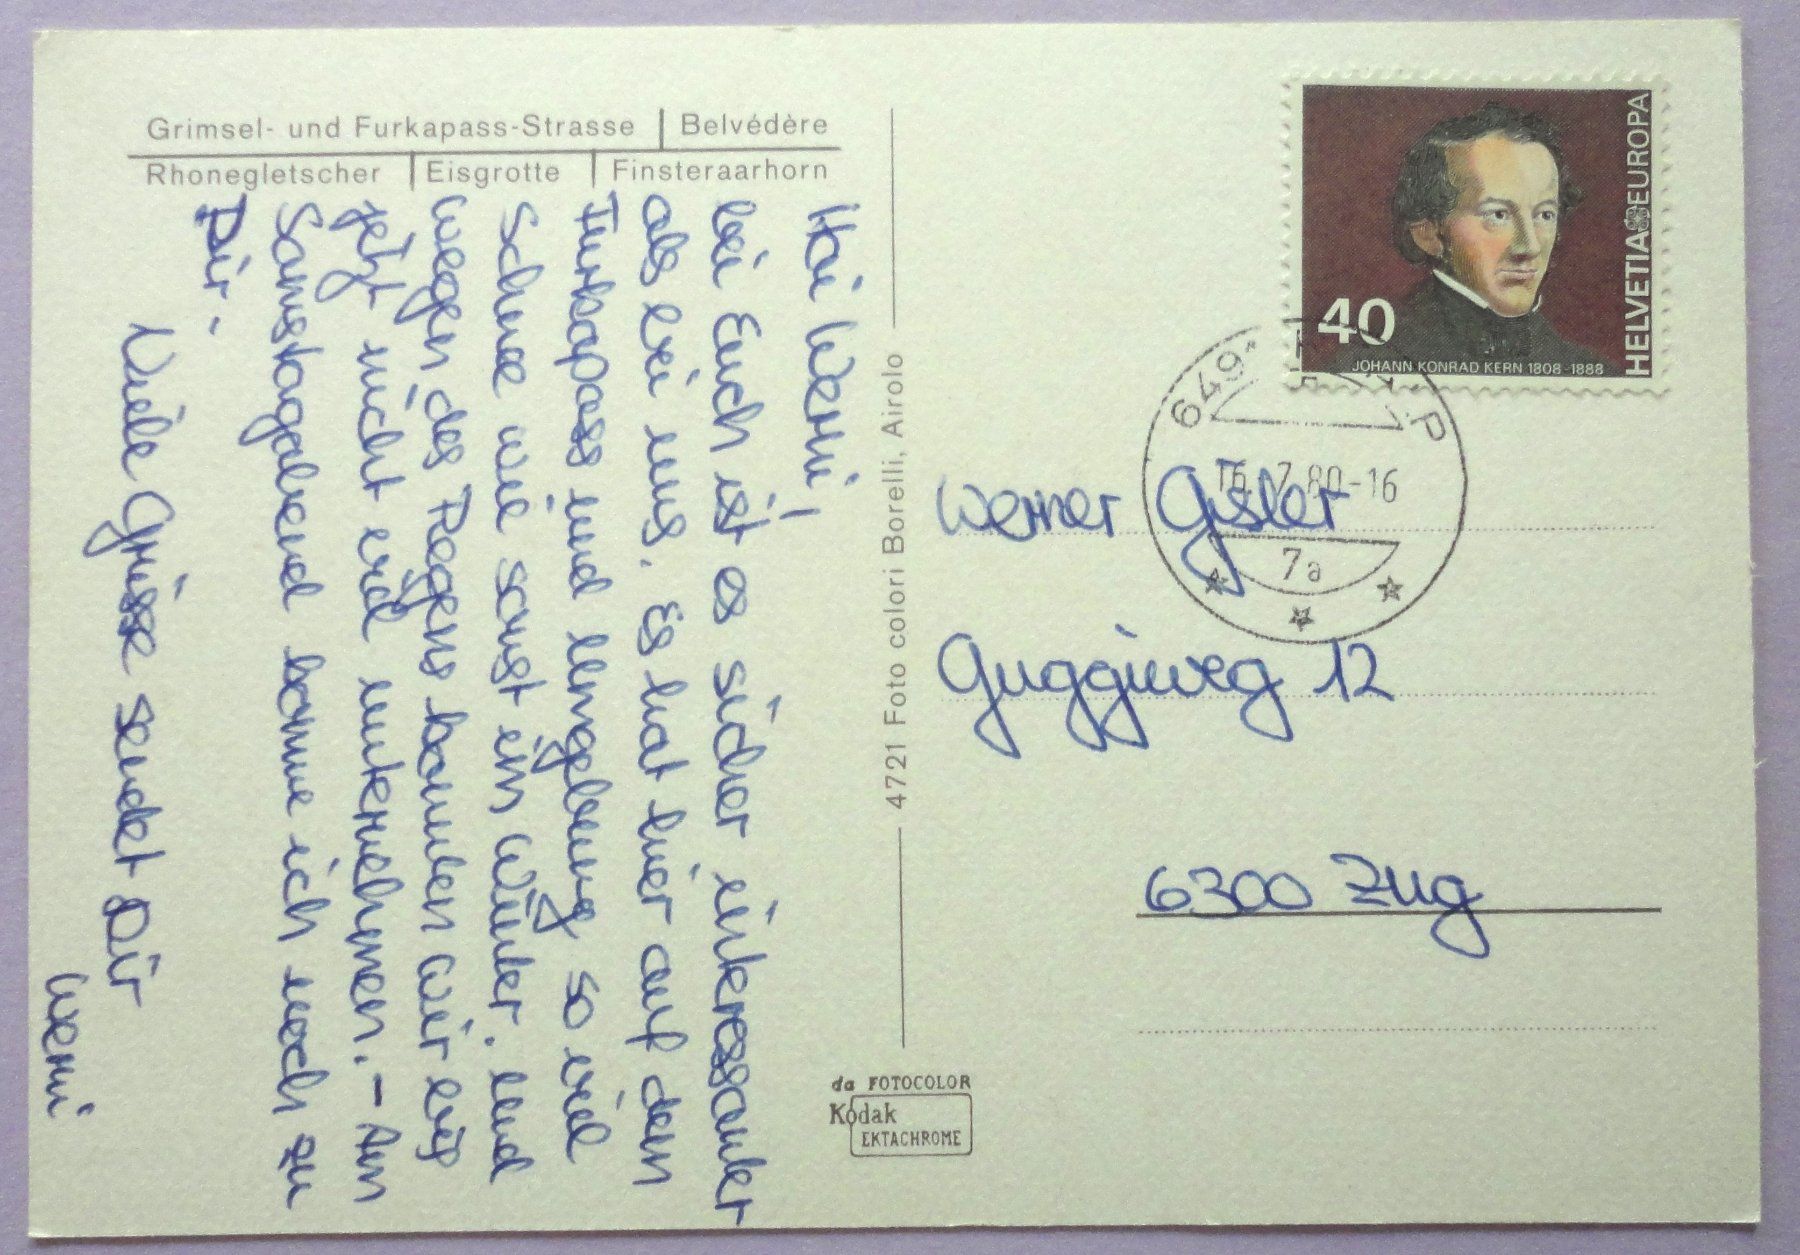 Grimsel- und Furkapass-Strasse | Belvédère
Rhonegletscher | Eisgrotte | Finsteraarhorn
Hoi Werni!
bei Euch ist es sicher interessanter
als bei uns. Es hat hier auf dem
Furkapass und Umgebung so viel
Schnee wie sonst im Winter. Und
wegen des Regens konnten wir bis
jetzt nicht viel unternehmen. - Am
Samstagabend komme ich noch zu
Dir.
Viele Grüsse sendet Dir
Werni
4721 Foto colori Borelli, Airolo
da FOTOCOLOR
Kodak
EKTACHROME
HELVETIA EUROPA
40
JOHANN KONRAD KERN 1808-1888
649
.P
16.7.80-16
7a
Werner Gisler
Guggiweg 12
6300 Zug